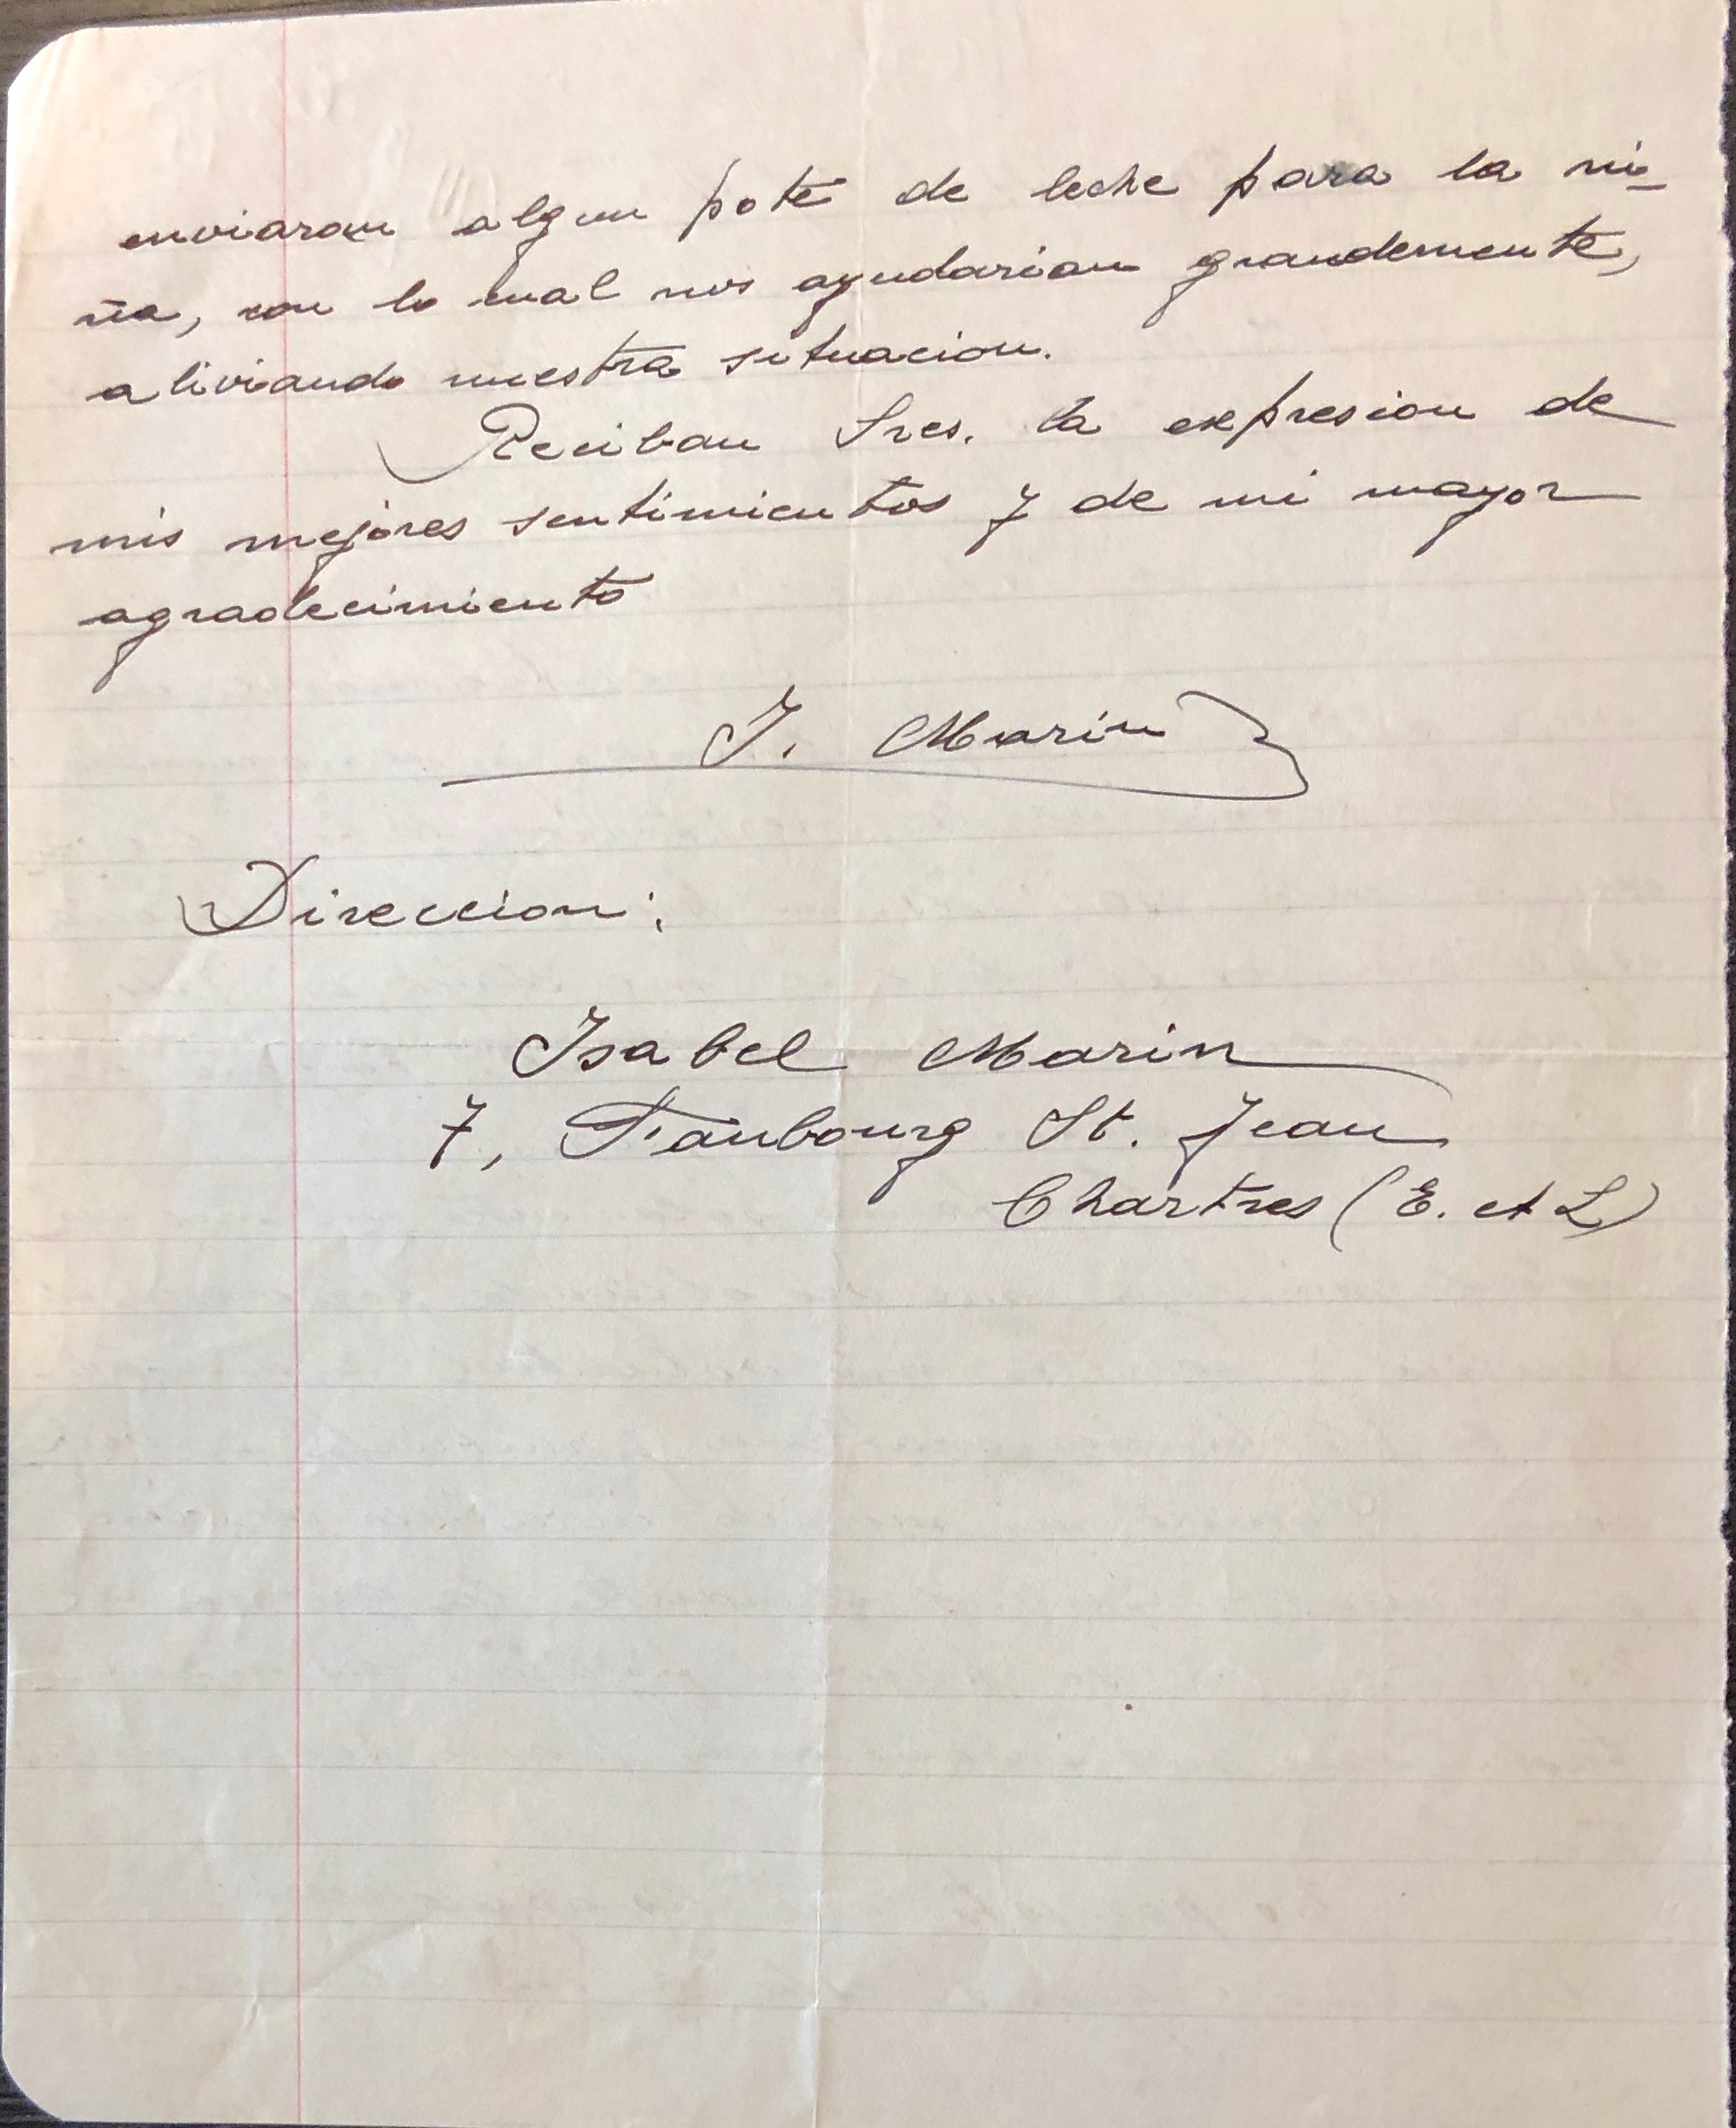 enviaran algun pote de leche para la ni-
ña, con lo cual nos ayudarian grandemente,
aliviando nuestra situacion.
Reciban Sres. la expresion de
mis mejores sentimientos y de mi mayor
agradecimiento
I. Marin
Direccion:
Isabel Marin
7, Faubourg St. Jean
Chartres (E. et L)